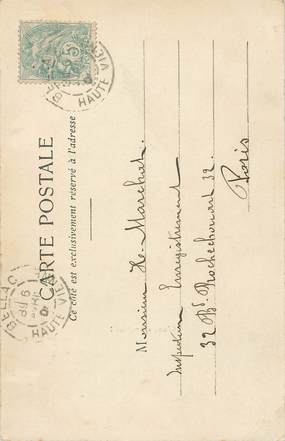 CARTE POSTALE
Ce côté est exclusivement réservé à l'adresse
Monsieur H. Marchat.
Inspecteur Enregistrement
32 Bd Rochechouart 32.
Paris
BELLAC
HAUTE VIENNE
BELLAC
HAUTE VIE